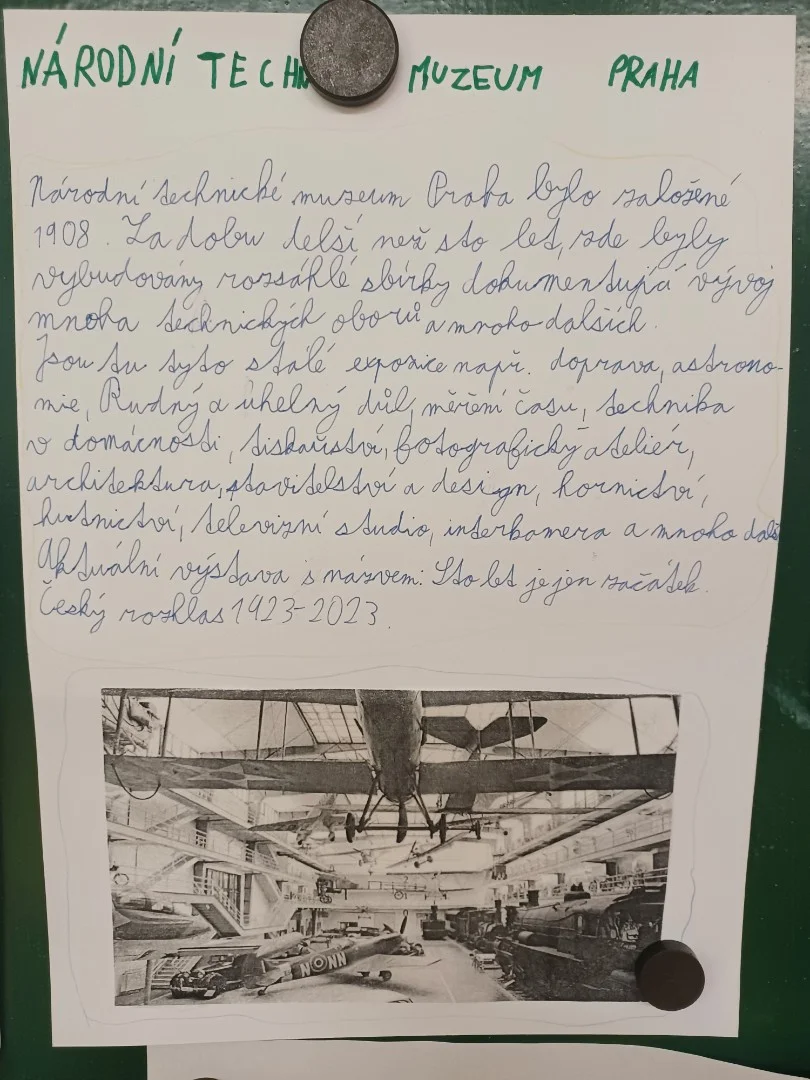 NÁRODNÍ TECHN MUZEUM PRAHA
Národní technické muzeum Praha bylo založené
1908. Za dobu delší než sto let, zde byly
vybudovány rozsáhlé sbírky dokumentující vývoj
mnoha technických oborů a mnoho dalších.
Jsou tu tyto stálé expozice např. doprava, astrono-
mie, Rudný a uhelný důl, měření času, technika
v domácnosti, tiskařství, fotografický atelier,
architektura, stavitelství a design, hornictví,
hutnictví, televizní studio, interkamera a mnoho dalš
Aktuální výstava s názvem: Sto let je jen začátek.
Český rozhlas 1923-2023.
NNN